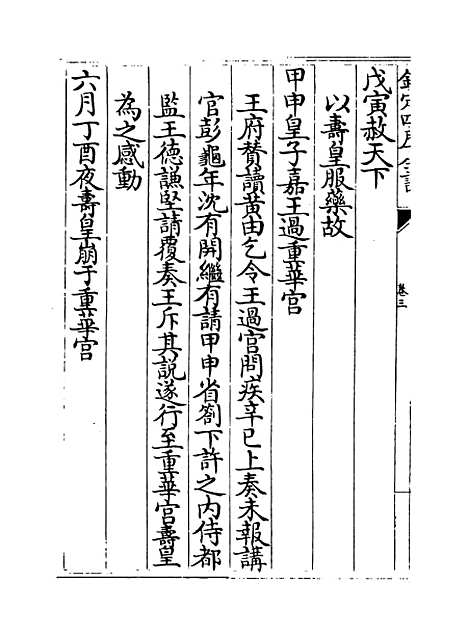 欽定四庫全書
卷三
戊寅赦天下
以壽皇服藥故
甲申皇子嘉王過重華宫
王府賛讀黄由乞令王過宫問疾辛已上奏未報講
官彭龜年沈有開繼有請甲申省劄下許之内侍都
監王德謙堅請覆奏王斥其説遂行至重華宫壽皇
為之感動
六月丁酉夜壽皇崩于重華宫